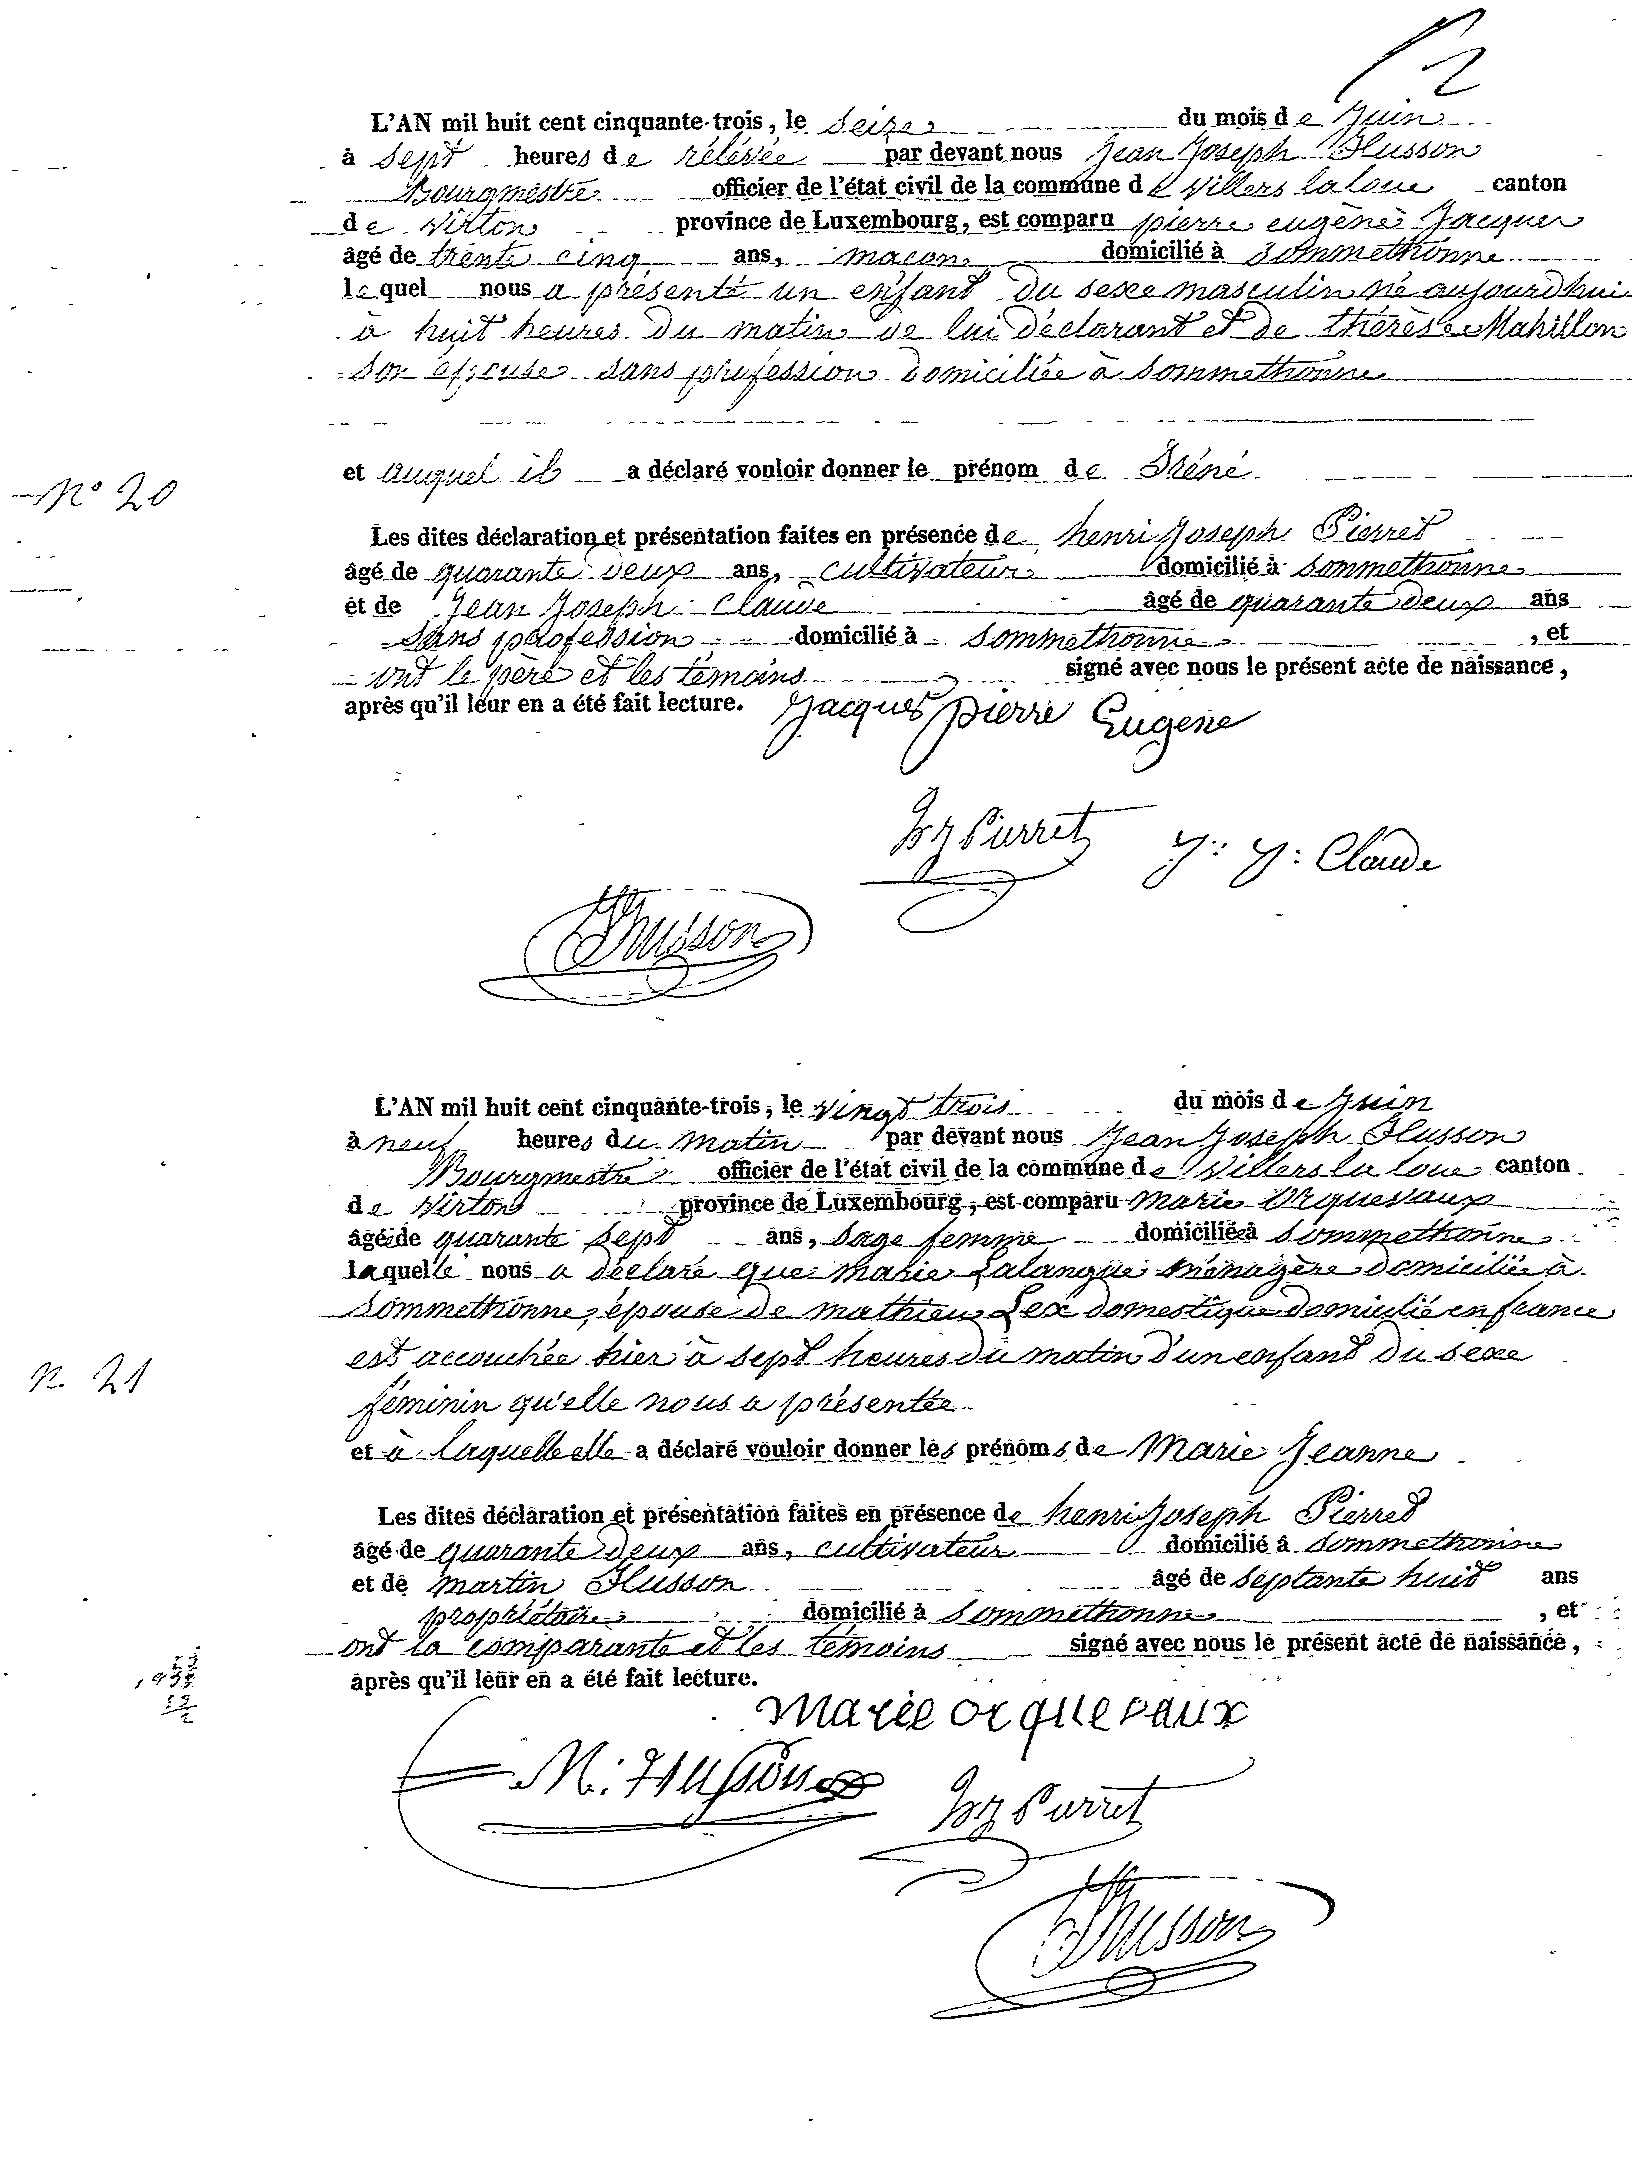 L'AN mil huit cent cinquante-trois, le seize du mois de Juin
à sept heures de rélévée par devant nous Jean Joseph Husson
Bourgmestre officier de l'état civil de la commune de Villers la loue canton
de Virton province de Luxembourg, est comparu pierre eugène Jacques
âgé de trente cinq ans, maçon domicilié à Sommethonne
lequel nous a présenté un enfant du sexe masculin né aujourdhui
à huit heures du matin de lui déclarant et de thérèse Mahillon
son épouse sans profession domiciliée à Sommethonne
et auquel il a déclaré vouloir donner le prénom de Iréné
N° 20
Les dites déclaration et présentation faites en présence de henri Joseph Pierret
âgé de quarante deux ans, cultivateur domicilié à Sommethonne
et de Jean Joseph Claude âgé de quarante deux ans
sans profession domicilié à Sommethonne , et
ont le père et les témoins signé avec nous le présent acte de naissance,
après qu'il leur en a été fait lecture. Jacques pierre Eugène
Pierret J: J: Claude
Husson
L'AN mil huit cent cinquante-trois, le vingt trois du mois de Juin
à neuf heures du matin par devant nous Jean Joseph Husson
Bourgmestre officier de l'état civil de la commune de Villers la loue canton
de Virton province de Luxembourg, est comparu Marie Orquevaux
âgée de quarante sept ans, sage femme domiciliée à Sommethonne
laquelle nous a déclaré que marie Lalangue ménagère domiciliée à
Sommethonne, épouse de mathieu Lex domestique domicilié en france
est accouchée hier à sept heures du matin d'un enfant du sexe
N. 21
féminin qu'elle nous a présentée
et à laquelle elle a déclaré vouloir donner les prénoms de Marie Jeanne
Les dites déclaration et présentation faites en présence de henri Joseph Pierret
âgé de quarante deux ans, cultivateur domicilié à Sommethonne
et de martin Husson âgé de septante huit ans
propriétaire domicilié à Sommethonne , et
ont la comparante et les témoins signé avec nous le présent acte de naissance,
après qu'il leur en a été fait lecture.
Marie orquevaux
M: Husson Pierret
Husson